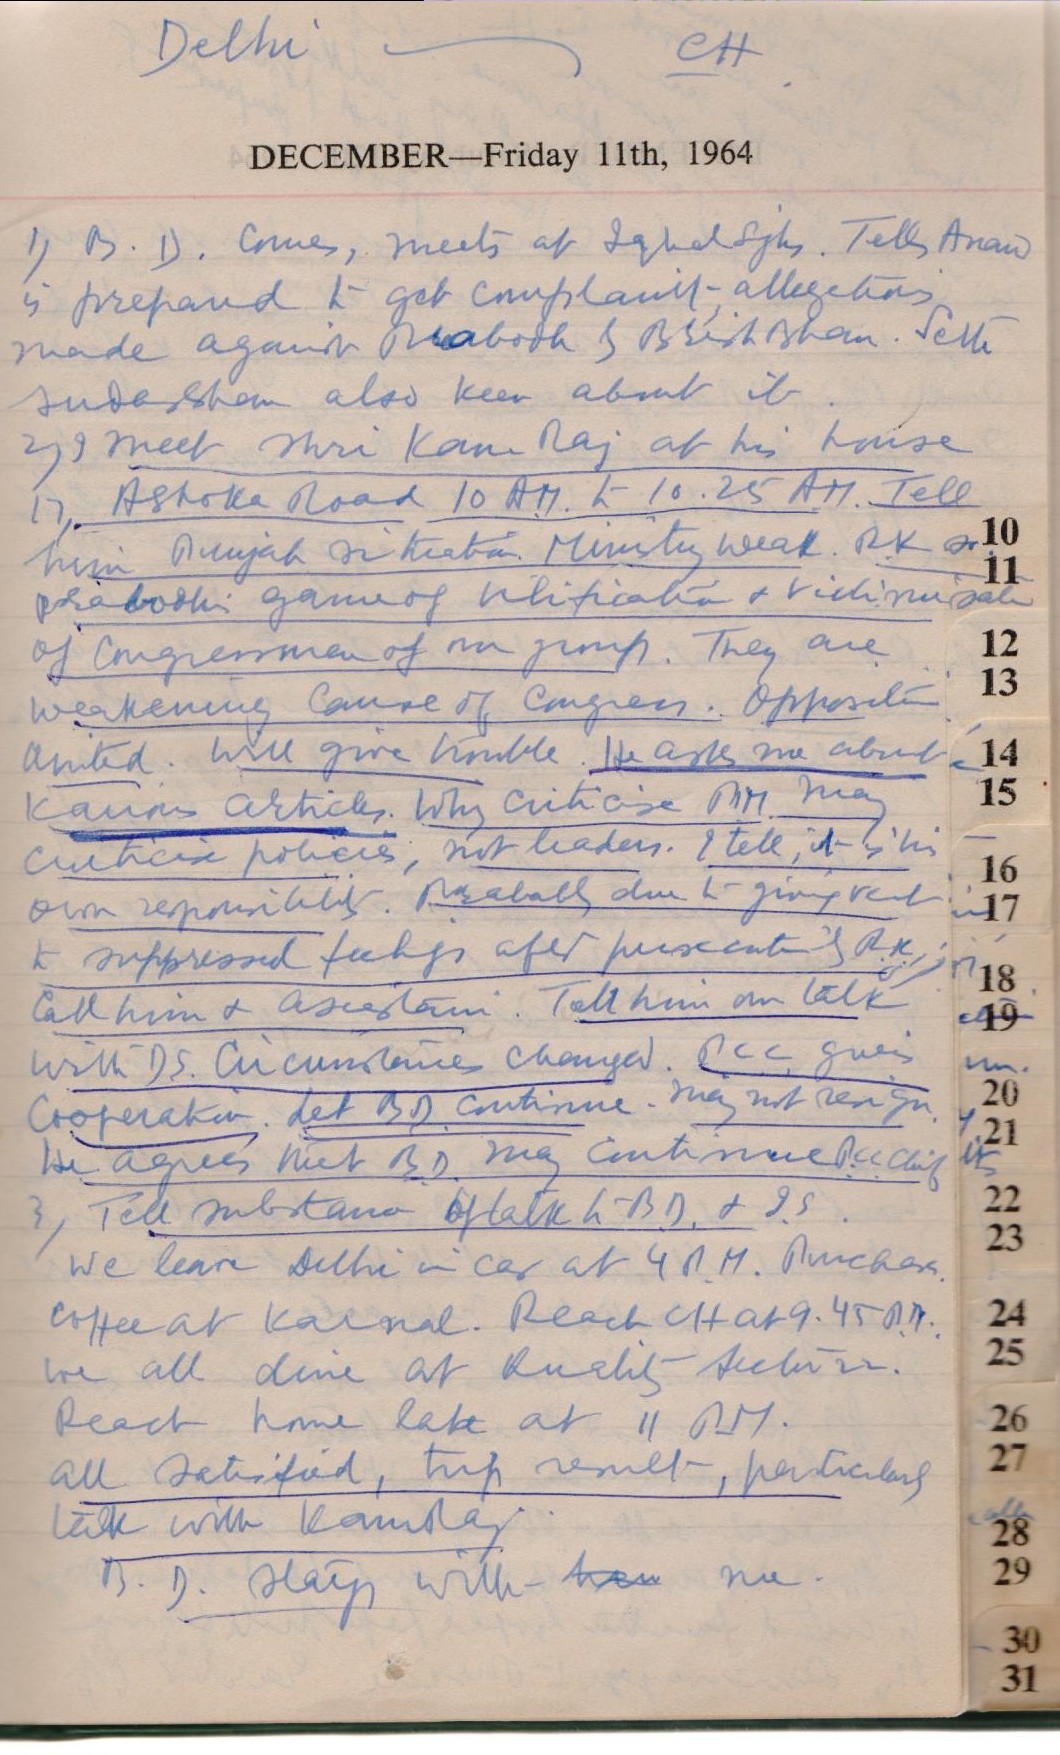 Delhi — CH
DECEMBER—Friday 11th, 1964
1) B. D. comes, meets at Iqbal Singhs. Tells Anand
is prepared to get complaint, allegations
made against Prabodh & Brish Bhan. Seth
Sudarshan also keen about it.
2) I meet Shri Kam Raj at his house
17, Ashoka Road 10 AM. to 10.25 AM. Tell
him Punjab situation. Ministry weak. RK &
10
11
prabodh game of vilification & victimisation
of Congressmen of our group. They are
12
13
weakening cause of Congress. Opposition
United. Will give trouble. He asks me about
14
15
Kairons articles. Why criticise PM. May
criticise policies, not leaders. I tell, it is his
16
17
own responsibility. Probably due to giving vent
to suppressed feelings after persecution by R.K.
18
19
Call him & ascertain. Tell him our talk
with DS. Circumstances changed. PCC gives
20
21
Cooperation. Let BD continue. May not resign.
He agrees that B.D. may continue P.C.C Chief
22
23
3) Tell substance of talk to B.D. & I.S.
We leave Delhi in car at 4 P.M. Purchase
24
25
coffee at Karnal. Reach CH at 9.45 P.M.
We all dine at Kuality Sector 22.
26
27
Reach home late at 11 P.M.
all satisfied, trip result, particularly
28
29
talk with KamRaj.
B. D. stays with me.
30
31